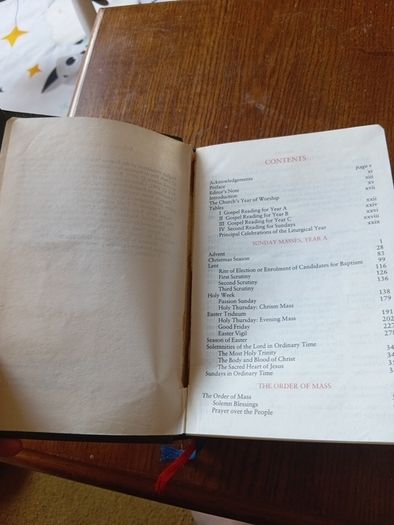 CONTENTS
Acknowledgements page v
Preface xi
Editor's Note xiii
Introduction xv
The Church's Year of Worship xvii
Tables
I Gospel Reading for Year A xxii
II Gospel Reading for Year B xxiv
III Gospel Reading for Year C xxvi
IV Second Reading for Sundays xxviii
Principal Celebrations of the Liturgical Year xxix
SUNDAY MASSES, YEAR A
Advent 1
Christmas Season 28
Lent 83
Rite of Election or Enrolment of Candidates for Baptism 99
First Scrutiny 116
Second Scrutiny 126
Third Scrutiny 136
Holy Week
Passion Sunday 138
Holy Thursday: Chrism Mass 179
Easter Triduum
Holy Thursday: Evening Mass 191
Good Friday 202
Easter Vigil
Season of Easter
Solemnities of the Lord in Ordinary Time
The Most Holy Trinity
The Body and Blood of Christ
The Sacred Heart of Jesus
Sundays in Ordinary Time
THE ORDER OF MASS
The Order of Mass
Solemn Blessings
Prayer over the People